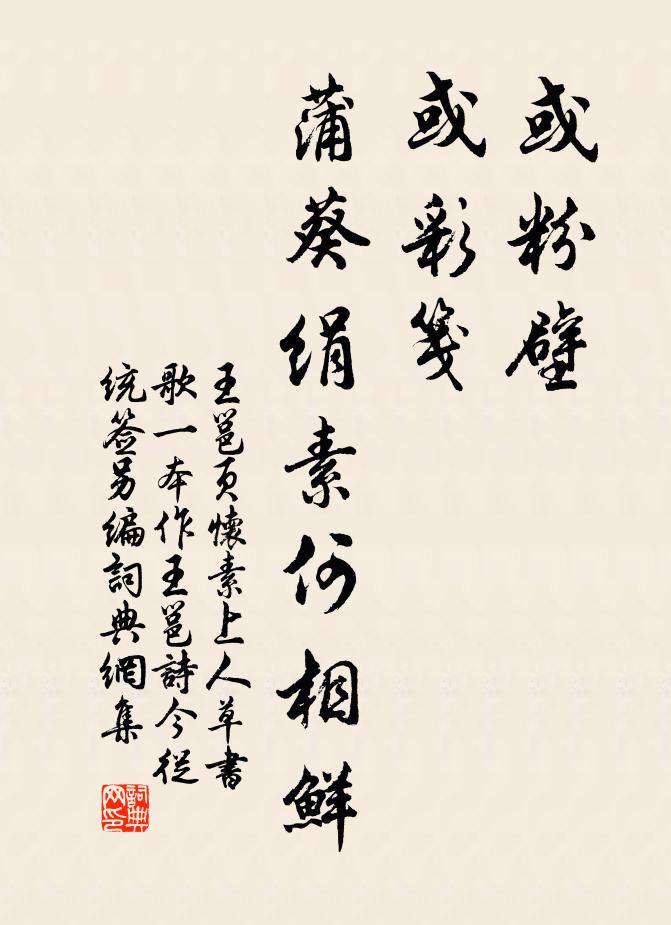 或粉壁
或彩箋
蒲葵絹素何相鮮
王邕頁懷素上人草書
歌一本作王邕詩今從
統簽另編詞典網集
詞典
网印